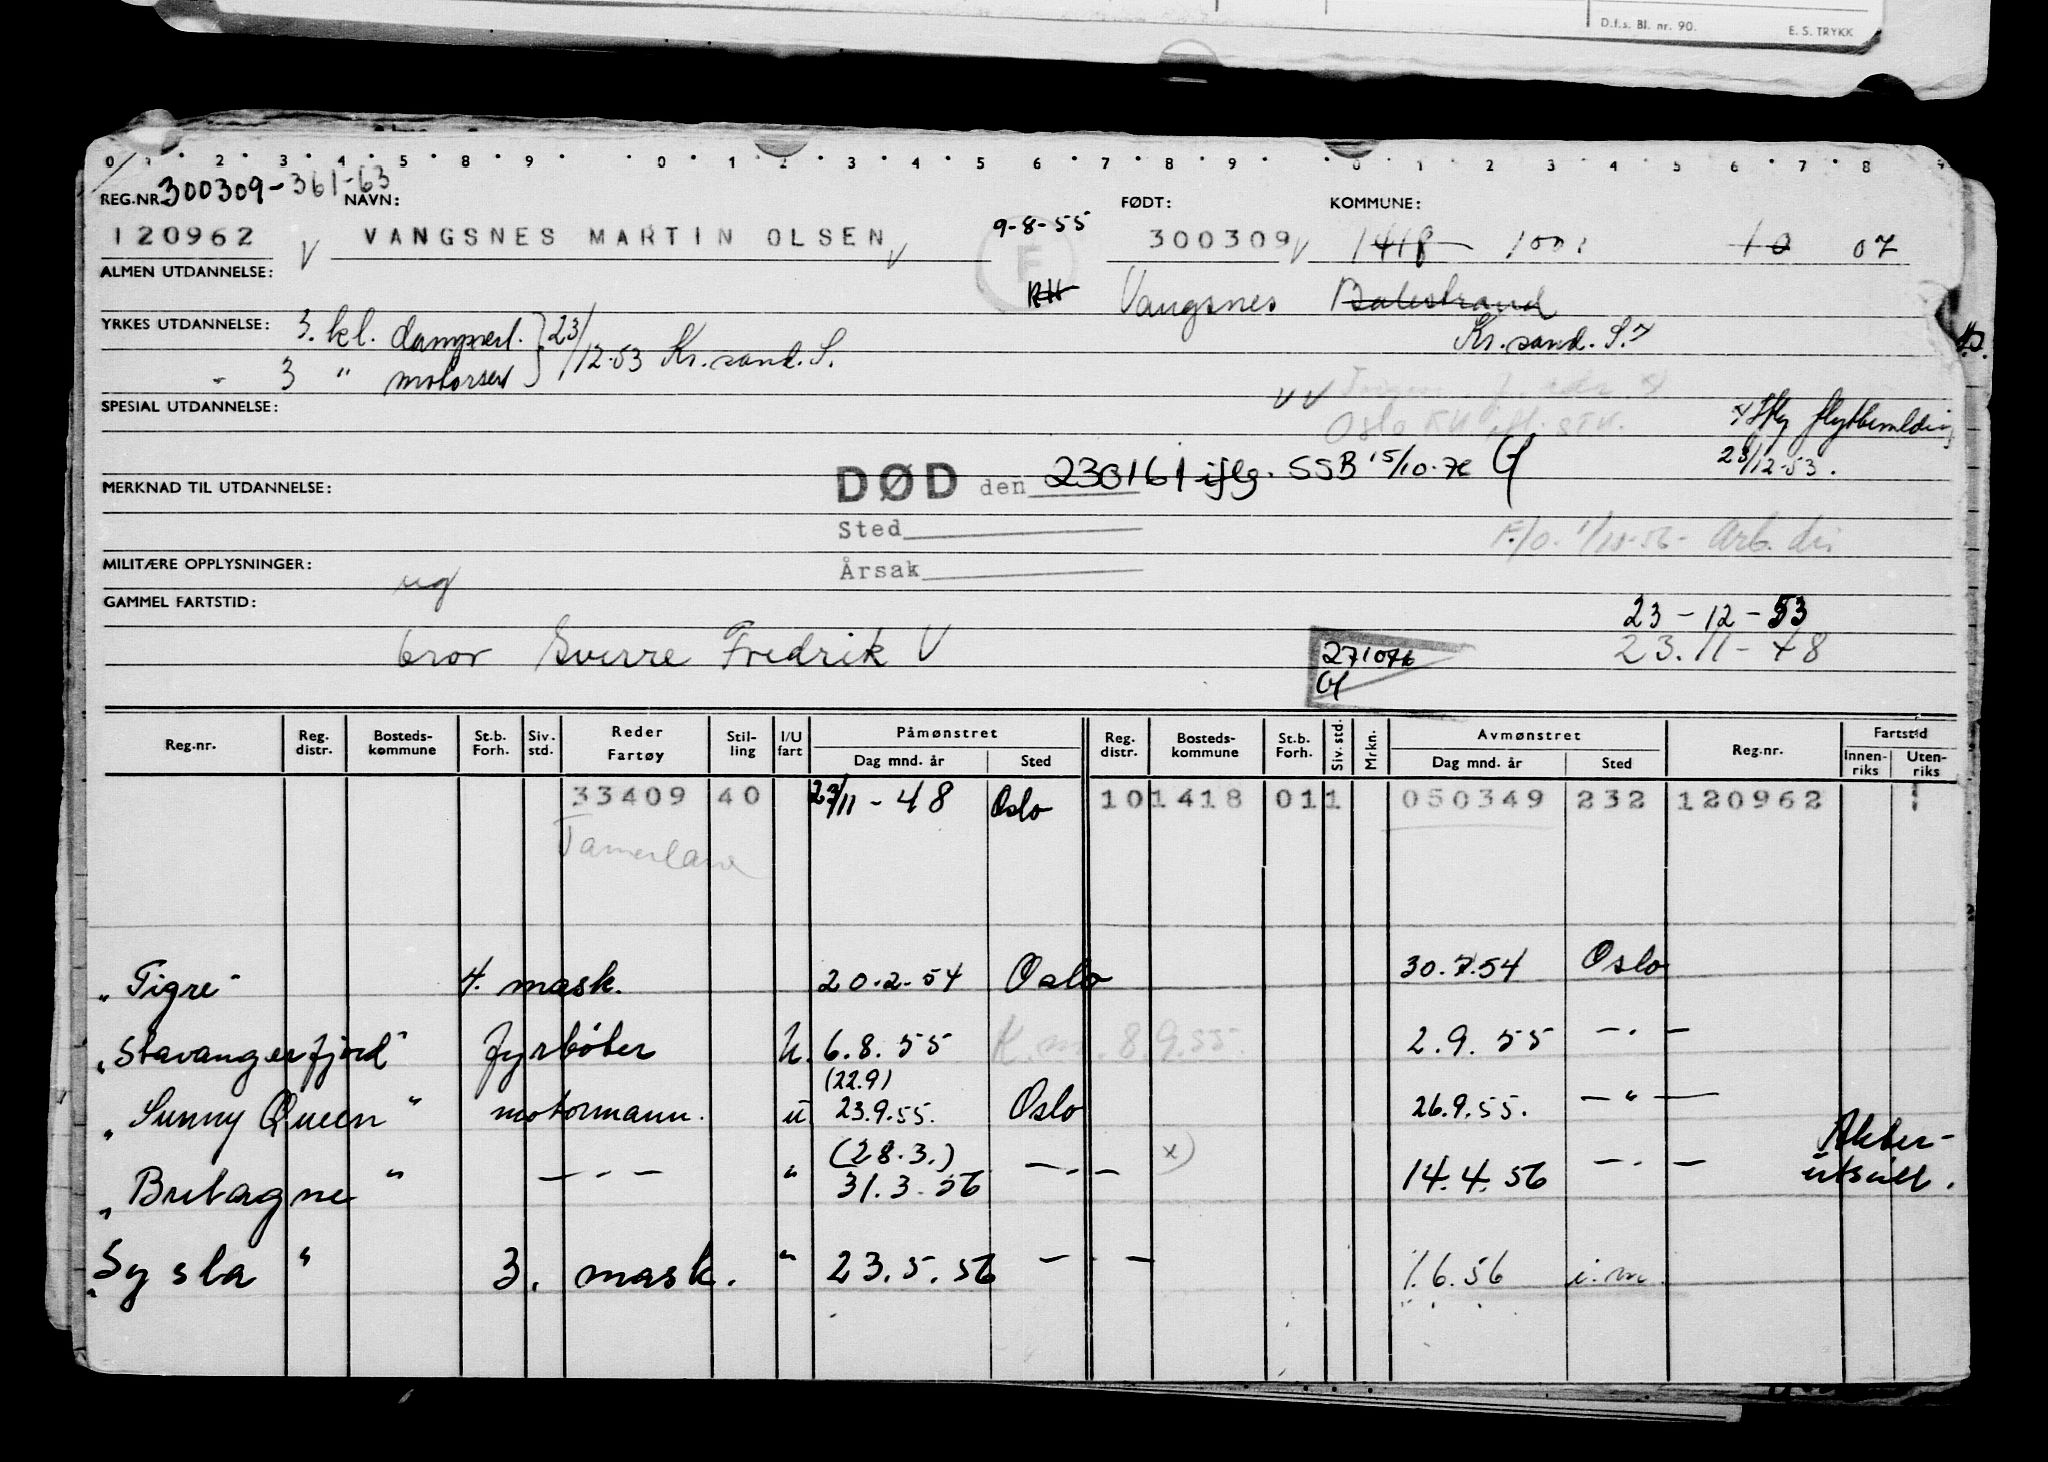 D.f.s. Bl. nr. 90. E. S. TRYKK
0 1 2 3 4 5 8 9 0 1 2 3 4 5 6 7 8 9 0 1 2 3 4 5 6 7 8 9
REG.NR. 300309-361-63 NAVN: FØDT: KOMMUNE:
120962 V VANGSNES MARTIN OLSEN V 9-8-55 F 300309 V 1418 1001 10 07
ALMEN UTDANNELSE:
RH Vangsnes Balestrand
YRKES UTDANNELSE: 3. kl. dampsert. } 23/12-53 Kr.sand. S. Kr.sand. S.
" 3 " motorsert
V V
SPESIAL UTDANNELSE: Oslo
flyttemelding
23/12-53.
DØD den 230161 iflg. SSB 15/10-76
MERKNAD TIL UTDANNELSE:
Sted
F/O. Arb. dir
MILITÆRE OPPLYSNINGER: ug
Årsak
GAMMEL FARTSTID: 23-12-53
bror Sverre Fredrik V 271076 23.11-48
Reg.nr. Reg. distr. Bosteds-kommune St.b. Forh. Siv. std. Reder Fartøy Stil-ling I/U fart Påmønstret Dag mnd. år Sted Reg. distr. Bosteds-kommune St.b. Forh. Siv. std. Mrkn. Avmønstret Dag mnd. år Sted Reg.nr. Fartstid Innen-riks Uten-riks
33409 40 23/11-48 Oslo 10 1418 01 1 050349 232 120962 1
Tamerlane
"Tigre" 4. mask. 20.2.54 Oslo 30.7.54 Oslo
"Stavangerfjord" fyrbøter U. 6.8.55 K.m. 8.9.55. 2.9.55 -"-
(22.9)
"Sunny Queen" motormann. u 23.9.55. Oslo 26.9.55. -"-
(28.3.) x) Akter-
"Bretagne" -"- " 31.3.56 -"- 14.4.56 -"- utseilt.
"Sysla" 3. mask. " 23.5.56 -"- 1.6.56 i.m.